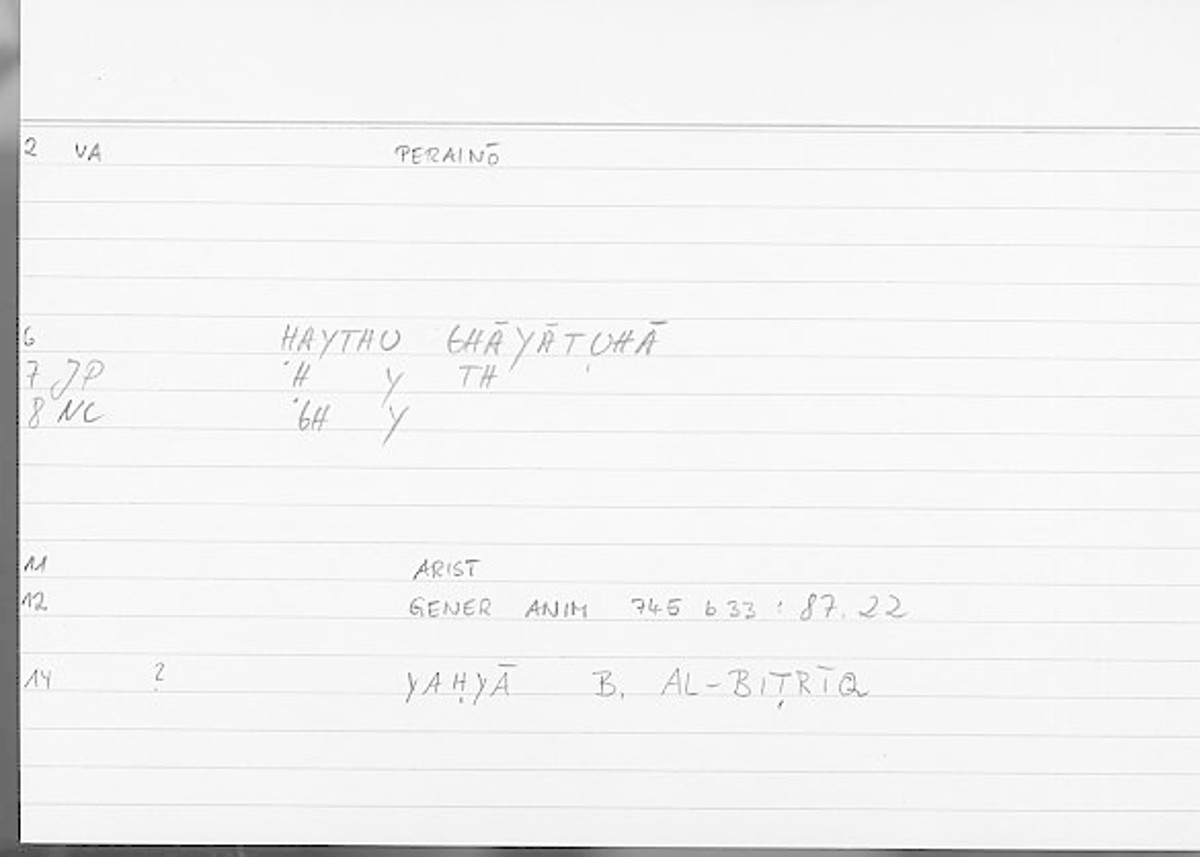 2 VA PERAINŌ
6 HAYTHU GHĀYĀTUHĀ
7 JP 'H Y TH
8 NC 'GH Y
11 ARIST
12 GENER ANIM 745 b 33 : 87.22
14 ? YAḤYĀ B. AL-BIṬRĪQ